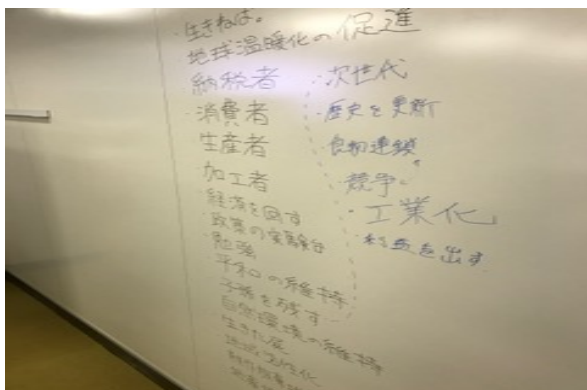 ・生きねば。
地球温暖化の促進
納税者
・消費者
生産者
加工者
・経済を回す
政策の実験台
・勉強
平和の維持
子孫を残す
自然環境の維持
・生きた屍
地域活性化
・次世代
・歴史を更新
・食物連鎖
・競争
・工業化
・利益を出す